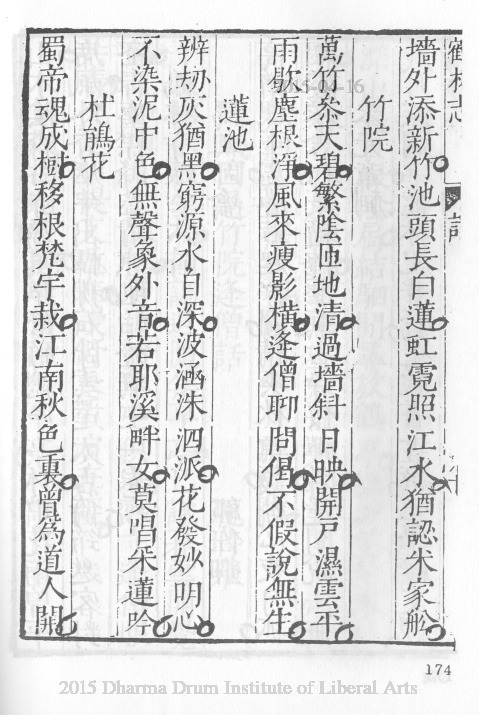 鶴林志
詩
墻外添新竹池頭長白蓮虹霓照江水猶認米家舩
竹院
萬竹叅天碧繁陰匝地清過墻斜日映開戶濕雲平
雨歇塵根浮風來瘦影橫逢僧聊問偈不假說無生
蓮池
辨刼灰猶黑窮源水自深波涵洙泗派花發妙明心
不染泥中色無聲象外音若耶溪畔女莫唱采蓮吟
杜鵑花
蜀帝魂成樹移根梵宇栽江南秋色裏曾為道人開
174
2015 Dharma Drum Institute of Liberal Arts